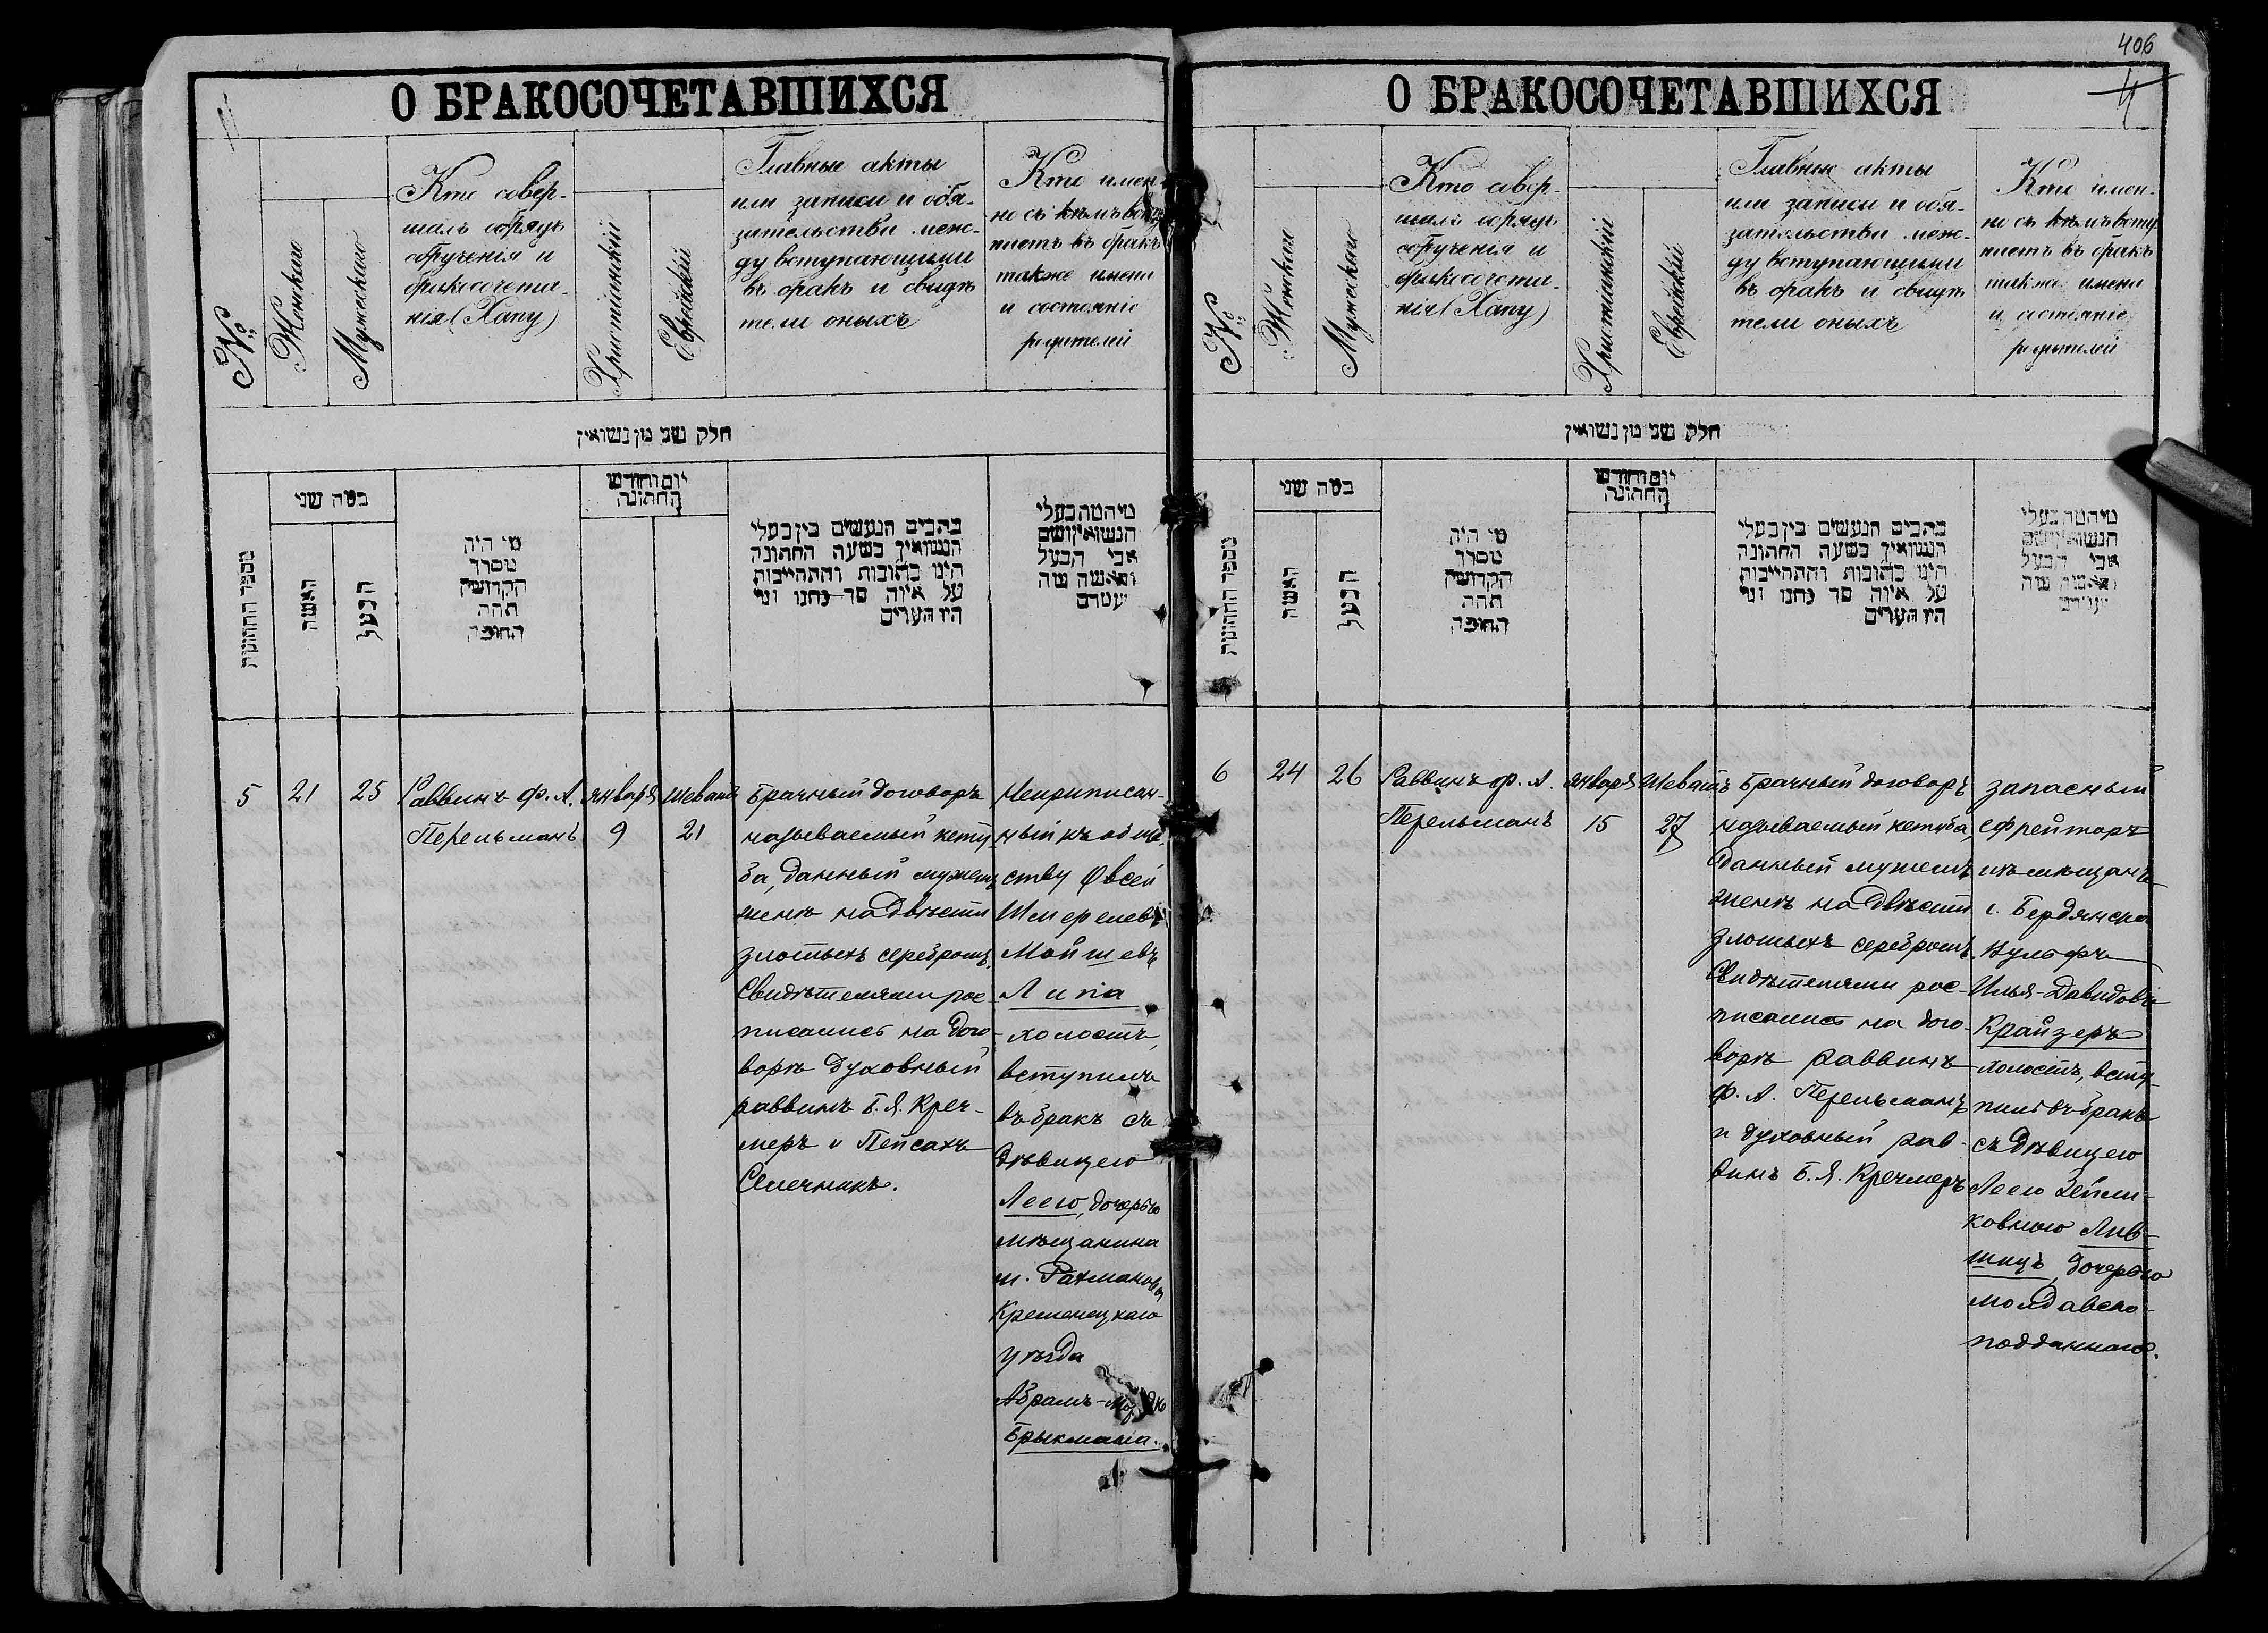 О БРАКОСОЧЕТАВШИХСЯ
№
Женскаго
Мужескаго
Кто совер-
шалъ обрядъ
обрученія и
бракосочета-
нія (Хапу)
Христіанскій
Еврейскій
Главные акты
или записи и обя-
зательства меж-
ду вступающими
въ бракъ и свидѣ
тели оныхъ
Кто имен-
но съ кѣмъ всту
паетъ въ бракъ
также имена
и состояніе
родителей
חלק שני מן נשואין
מספר החתונות
כמה שני
האשה
הבעל
מי היה
מסדר
הקדושין
תחת
החופה
יום וחודש
החתונה
כתבים הנעשים בין בעלי
הנשואין בשעה החתונה
היינו כתובות והתחייבות
על איזה סך נתנו ומי
היו העדים
הנשואין ושם
אבי הבעל
5
21
25
Раввинъ Ф. А.
Перельманъ
Января
9
Шеватъ
21
Брачный договоръ
называемый кету
ба, данный мужемъ
женѣ на двѣсти
злотыхъ серебромъ.
Свидѣтелями рос-
писались на дого-
ворѣ духовный
раввинъ Б. Я. Креч-
меръ и Пейсахъ
Селечникъ.
Неприписан-
ный къ обще-
ству Овсей
Шмерелевъ
Мойшевъ
Липа
холостъ,
вступилъ
въ бракъ съ
дѣвицею
Леею, дочерью
мѣщанина
м. Рахманова
Кременецкаго
уѣзда
Абрамъ-
Брыкмана.
406
4
О БРАКОСОЧЕТАВШИХСЯ
№
Женскаго
Мужескаго
Кто совер-
шалъ обрядъ
обрученія и
бракосочета-
нія (Хапу)
Христіанскій
Еврейскій
Главные акты
или записи и обя-
зательства меж-
ду вступающими
въ бракъ и свидѣ
тели оныхъ
Кто имен-
но съ кѣмъ всту
паетъ въ бракъ
также имена
и состояніе
родителей
חלק שני מן נשואין
מספר החתונות
כמה שני
האשה
הבעל
מי היה
מסדר
הקדושין
תחת
החופה
יום וחודש
החתונה
כתבים הנעשים בין בעלי
הנשואין בשעה החתונה
היינו כתובות והתחייבות
על איזה סך נתנו ומי
היו העדים
הנשואין ושם
אבי הבעל
6
24
26
Раввинъ Ф. А.
Перельманъ
Января
15
Шеватъ
27
Брачный договоръ
называемый кетуба,
данный мужемъ
женѣ на двѣсти
злотыхъ серебромъ.
Свидѣтелями рос-
писались на дого-
ворѣ раввинъ
Ф. А. Перельманъ
и духовный рав-
винъ Б. Я. Кречмеръ
запасный
ефрейторъ
изъ мѣщанъ
г. Бердянска
Вульфъ
Илья-Давидовъ
Крайзеръ
холостъ, всту-
пилъ въ бракъ
съ дѣвицею
Леею Зейли-
ковною Лив-
шицъ, дочерью
молдавско-
подданнаго.